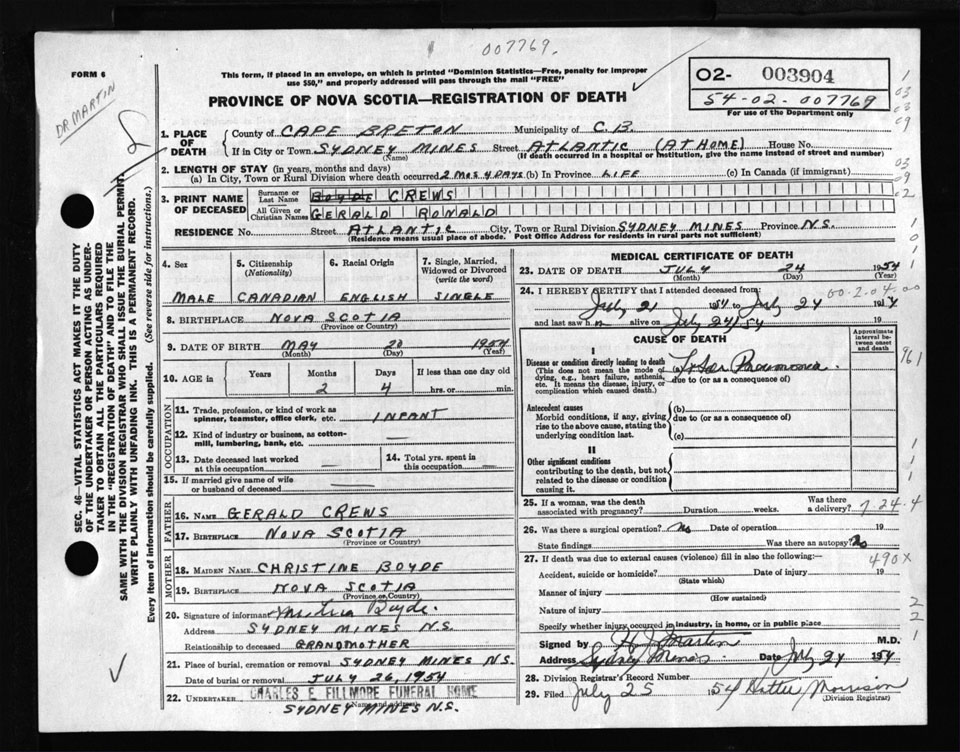 007769.
FORM 6
DR MARTIN
This form, if placed in an envelope, on which is printed "Dominion Statistics—Free, penalty for improper
use $50," and properly addressed will pass through the mail "FREE"
PROVINCE OF NOVA SCOTIA—REGISTRATION OF DEATH
02- 003904
54-02-007769
For use of the Department only
1. PLACE OF DEATH
County of CAPE BRETON Municipality of C.B.
If in City or Town SYDNEY MINES Street ATLANTIC (AT HOME) House No.
(Name) (If death occurred in a hospital or institution, give the name instead of street and number)
2. LENGTH OF STAY (in years, months and days)
(a) In City, Town or Rural Division where death occurred 2 MOS 4 DAYS (b) In Province LIFE (c) In Canada (if immigrant)
3. PRINT NAME OF DECEASED
Surname or Last Name BOYDE CREWS
All Given or Christian Names GERALD RONALD
RESIDENCE No. Street ATLANTIC City, Town or Rural Division SYDNEY MINES Province N.S.
(Residence means usual place of abode. Post Office Address for residents in rural parts not sufficient)
4. Sex
MALE
5. Citizenship
(Nationality)
CANADIAN
6. Racial Origin
ENGLISH
7. Single, Married,
Widowed or Divorced
(write the word)
SINGLE
8. BIRTHPLACE NOVA SCOTIA
(Province or Country)
9. DATE OF BIRTH MAY 20 1954
(Month) (Day) (Year)
10. AGE in Years Months Days If less than one day old
2 4 hrs. or min.
OCCUPATION
11. Trade, profession, or kind of work as
spinner, teamster, office clerk, etc. INFANT
12. Kind of industry or business, as cotton-
mill, lumbering, bank, etc. —
13. Date deceased last worked
at this occupation —
14. Total yrs. spent in
this occupation —
15. If married give name of wife
or husband of deceased —
FATHER
16. NAME GERALD CREWS
17. BIRTHPLACE NOVA SCOTIA
(Province or Country)
MOTHER
18. MAIDEN NAME CHRISTINE BOYDE
19. BIRTHPLACE NOVA SCOTIA
(Province or Country)
20. Signature of informant Boyde.
Address SYDNEY MINES N.S.
Relationship to deceased GRANDMOTHER
21. Place of burial, cremation or removal SYDNEY MINES N.S.
Date of burial or removal JULY 26, 1954
22. UNDERTAKER CHARLES E FILLMORE FUNERAL HOME
(Name and address)
SYDNEY MINES N.S.
MEDICAL CERTIFICATE OF DEATH
23. DATE OF DEATH JULY 24 1954
(Month) (Day) (Year)
24. I HEREBY CERTIFY that I attended deceased from:
July 21 1954 to July 24 19
and last saw h alive on July 24/54
CAUSE OF DEATH
Approximate
interval be-
tween onset
and death
I
Disease or condition directly leading to death
(This does not mean the mode of
dying, e.g., heart failure, asthenia,
etc. It means the disease, injury, or
complication which caused death.)
Lobar Pneumonia
due to (or as a consequence of)
Antecedent causes
Morbid conditions, if any, giving
rise to the above cause, stating the
underlying condition last.
(b)
due to (or as a consequence of)
(c)
II
Other significant conditions
contributing to the death, but not
related to the disease or condition
causing it.
25. If a woman, was the death
associated with pregnancy? Duration weeks. Was there a delivery?
26. Was there a surgical operation? No Date of operation 19
State findings Was there an autopsy? No
27. If death was due to external causes (violence) fill in also the following:—
490X
Accident, suicide or homicide? Date of injury 19
(State which)
Manner of injury
(How sustained)
Nature of injury
Specify whether injury occurred in industry, in home, or in public place
Signed by H J Martin M.D.
Address Sydney Mines Date July 24 1954
28. Division Registrar's Record Number
29. Filed July 25 1954 Hattie Morrison
(Division Registrar)
SEC. 46—VITAL STATISTICS ACT MAKES IT THE DUTY
OF THE UNDERTAKER OR PERSON ACTING AS UNDER-
TAKER TO OBTAIN ALL THE PARTICULARS REQUIRED
IN THE "REGISTRATION OF DEATH" AND TO FILE THE
SAME WITH THE DIVISION REGISTRAR WHO SHALL ISSUE THE BURIAL PERMIT.
WRITE PLAINLY WITH UNFADING INK. THIS IS A PERMANENT RECORD.
Every item of information should be carefully supplied. (See reverse side for instructions.)